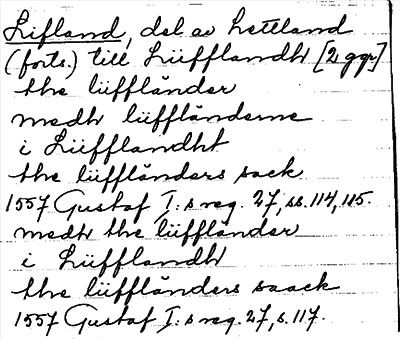 Lifland, del av Lettland
(forts.) till Lüfflandh [2 ggr]
the lüffländer
medh lüffländerne
i Lüfflandht
the lüffländers sack
1557 Gustaf I:s reg. 27, ss. 114, 115.
medh the lüffländer
i Lüfflandh
the lüffländers saack
1557 Gustaf I:s reg. 27, s. 117.